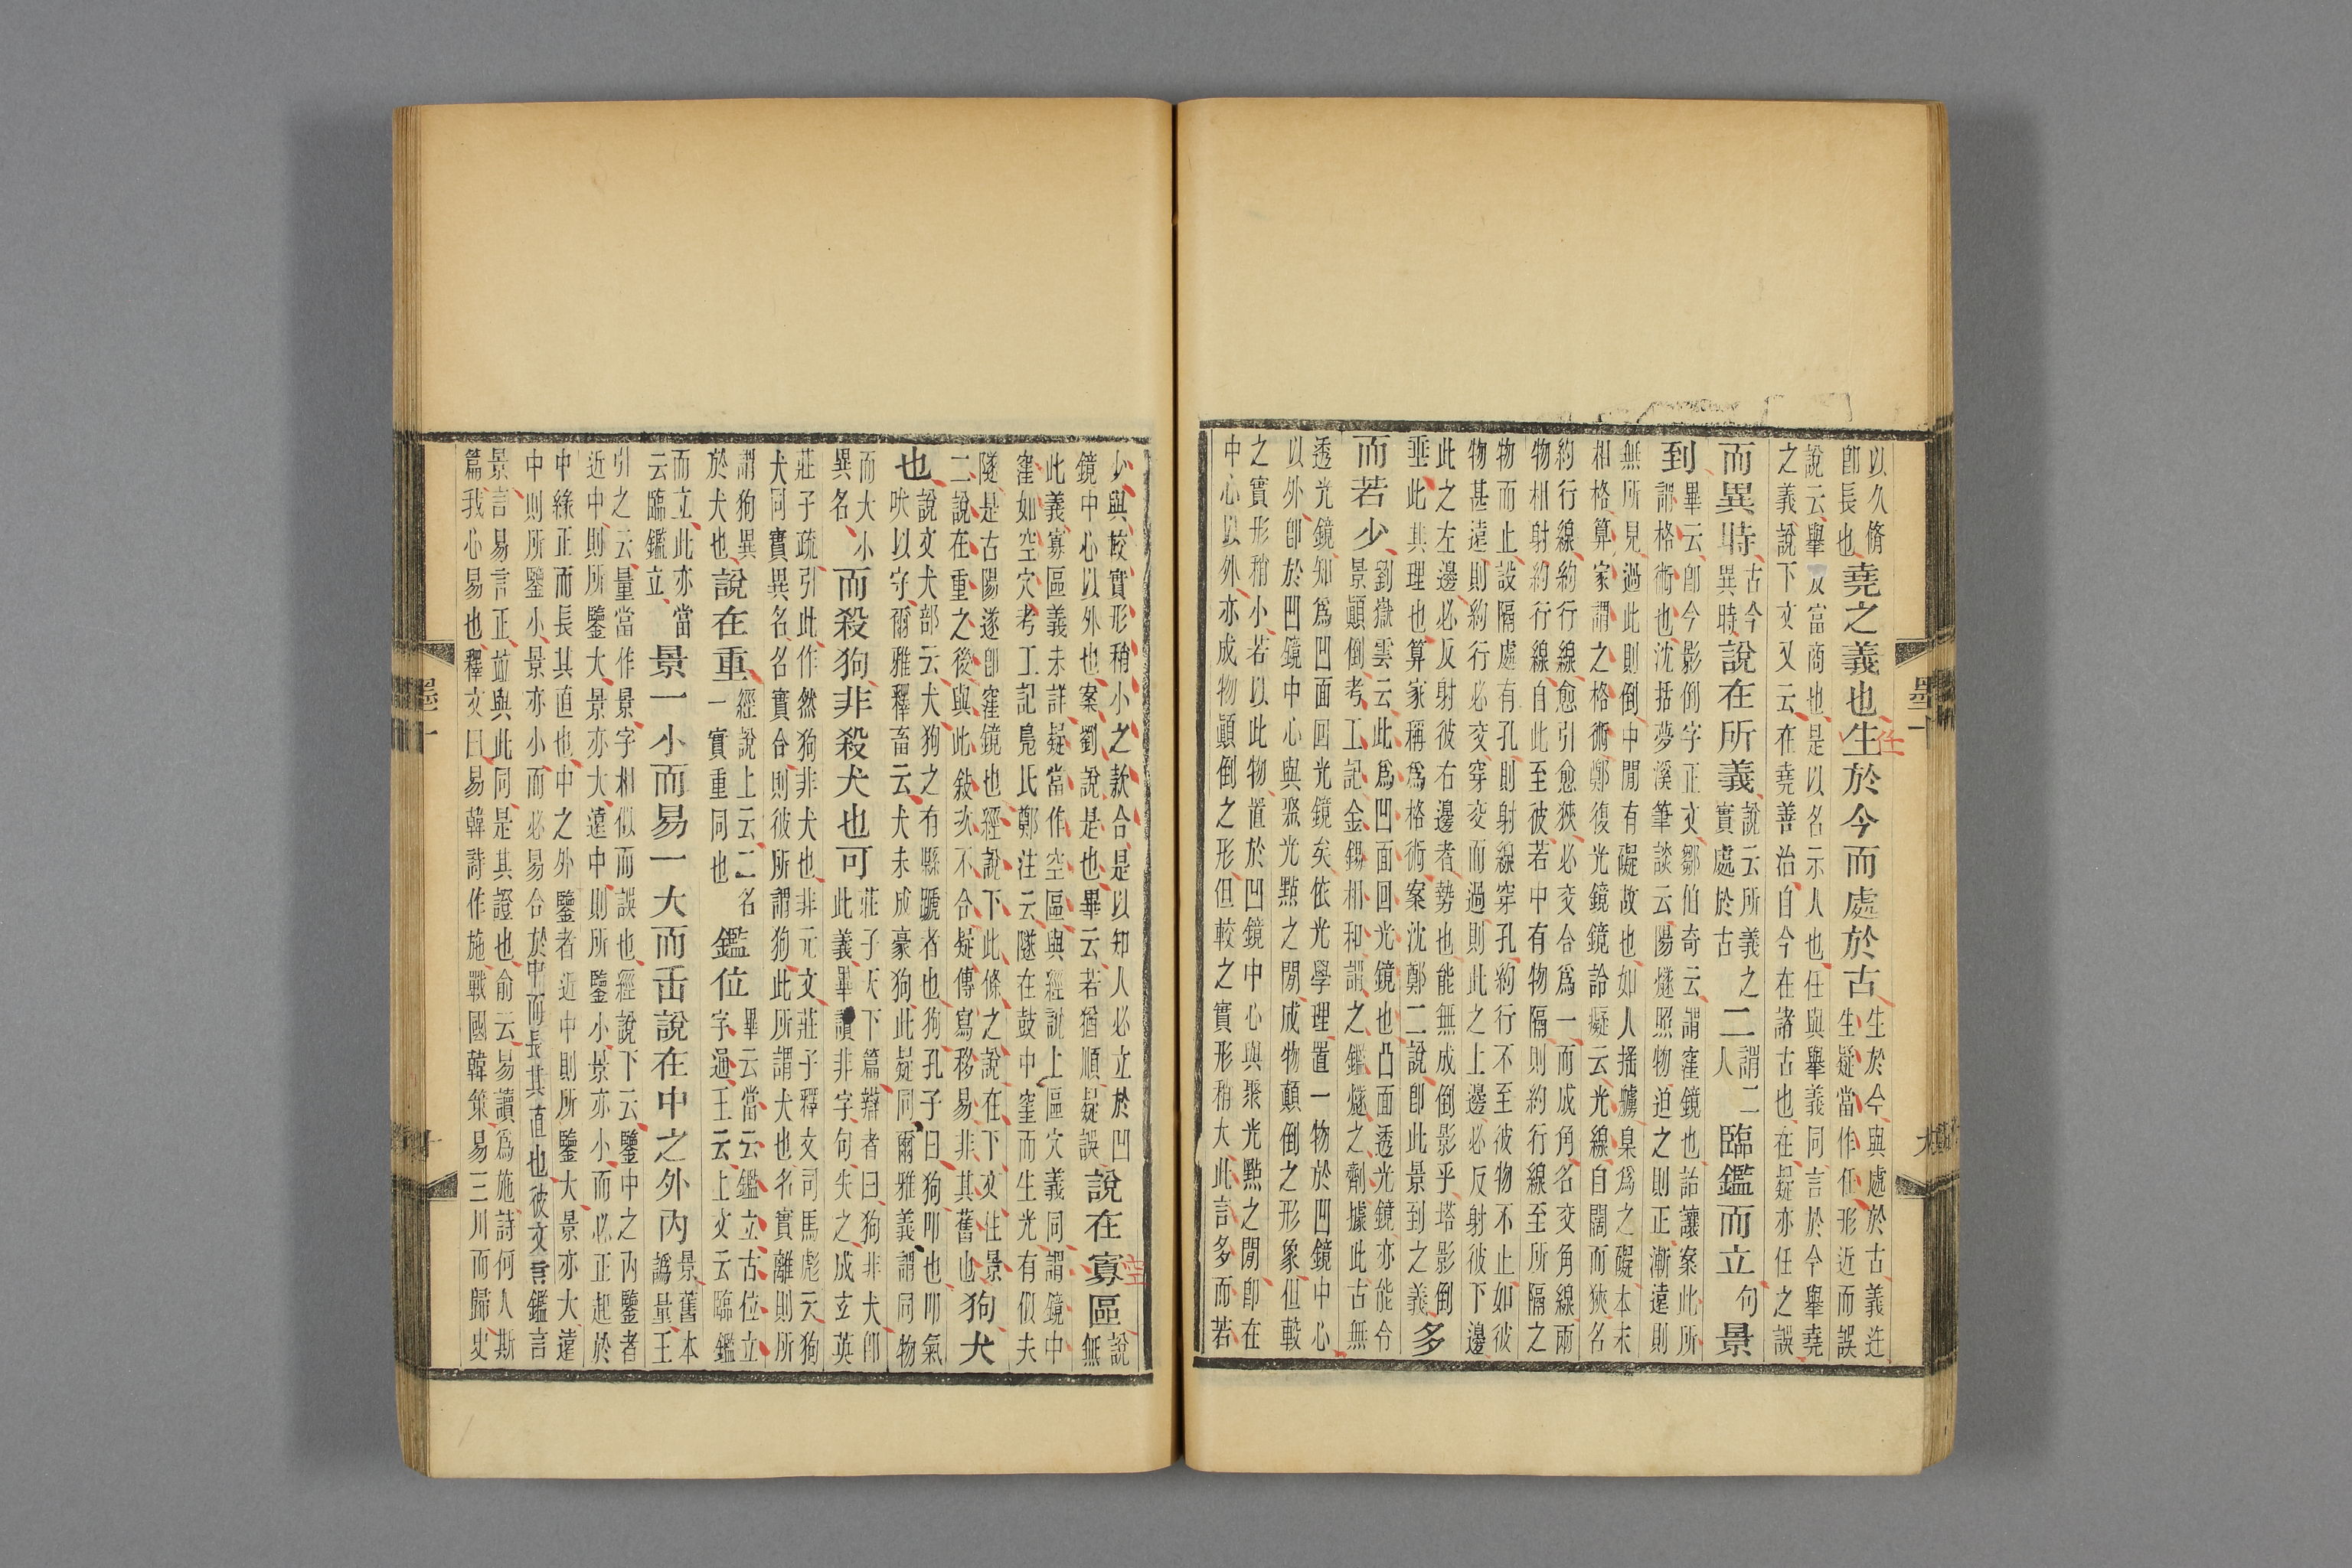 以久脩
卽長也
堯之義也生於今而處於古
生於今與處於古義迕
生疑當作任形近而誤
說云舉友富商也是以名示人也任與舉義同言於今舉堯
之義說下文又云在堯善治自今在諸古也在疑亦任之誤
而異時
古今
異時
說在所義
說云所義之
實處於古
二
謂二
人
臨鑑而立
句
景
到
畢云卽今影倒字正文鄒伯奇云謂窪鏡也詒讓案此所
謂格術也沈括夢溪筆談云陽燧照物迫之則正漸遠則
無所見過此則倒中閒有礙故也如人搖艣臬爲之礙本末
相格算家謂之格術鄭復光鏡鏡詅癡云光線自闊而狹名
約行線約行線愈引愈狹必交合爲一而成角名交角線兩
物相射約行線自此至彼若中有物隔則約行線至所隔之
物而止設隔處有孔則射線穿孔約行不至彼物不止如彼
物甚遠則約行必交穿交而過則此之上邊必反射彼下邊
此之左邊必反射彼右邊者勢也能無成倒影乎塔影倒
垂此其理也算家稱爲格術案沈鄭二說卽此景到之義
多
而若少
劉嶽雲云此爲凹面回光鏡也凸面透光鏡亦能令
景顚倒考工記金錫相和謂之鑑燧之劑據此古無
透光鏡知爲凹面回光鏡矣依光學理置一物於凹鏡中心
以外卽於凹鏡中心與聚光點之閒成物顚倒之形象但較
之實形稍小若以此物置於凹鏡中心與聚光點之閒卽在
中心以外亦成物顚倒之形但較之實形稍大此言多而若
少與較實形稍小之款合是以知人必立於凹
鏡中心以外也案劉說是也畢云若猶順疑誤
說在寡區
說
無
此義寡區義未詳疑當作空區與經說上區穴義同謂鏡中
窪如空穴考工記鳧氏鄭注云隧在鼓中窐而生光有似夫
隧是古陽遂卽窪鏡也經說下此條之說在下文住景
二說在重之後與此敍次不合疑傳寫移易非其舊也
狗犬
也
說文犬部云犬狗之有縣蹏者也狗孔子曰狗叩也叩氣
吠以守爾雅釋畜云犬未成豪狗此疑同爾雅義謂同物
而大小
異名
而殺狗非殺犬也可
莊子天下篇辯者曰狗非犬卽
此義畢讀非字句失之成玄英
莊子疏引此作然狗非犬也非元文莊子釋文司馬彪云狗
犬同實異名名實合則彼所謂狗此所謂犬也名實離則所
謂狗異
於犬也
說在重
經說上云二名
一實重同也
鑑位
畢云當云鑑立古位立
字通王云上文云臨鑑
而立此亦當
云臨鑑立
景一小而易一大而𠙽說在中之外內
景舊本
譌量王
引之云量當作景字相似而誤也經說下云鑒中之內鑒者
近中則所鑒大景亦大遠中則所鑒小景亦小而必正起於
中緣正而長其直也中之外鑒者近中則所鑒大景亦大遠
中則所鑒小景亦小而必易合於中而長其直也彼文言鑑言
景言易言正竝與此同是其證也俞云易讀爲施詩何人斯
篇我心易也釋文曰易韓詩作施戰國韓策易三川而歸史
墨十
九
墨十
十
任
空